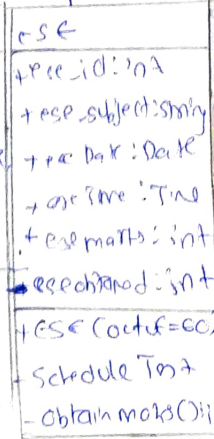 ESE
+ese_id:int
+ese_subject:string
+ese Date:Date
+ese Time:Time
+ese marks:int
int
+ESE
Schedule Test
-obtain marks();